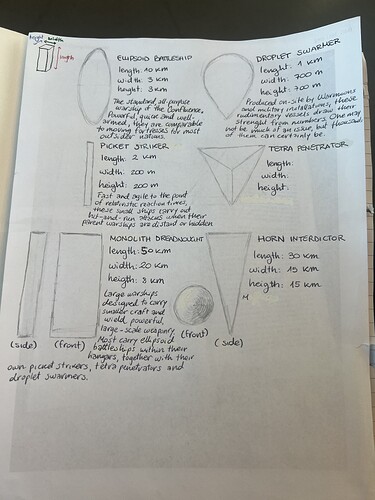 height
width
length
ELLIPSOID BATTLESHIP
length: 10 KM
width: 3 KM
height: 3 KM
The standard all-purpose
warship of the Confluence.
Powerful, quick and well-
armed, they are comparable
to moving fortresses for most
outsider nations.
DROPLET SWARMER
lenght: 1 KM
width: 700 m
height: 700 m
Produced on-site by Warmoons
and military installations, these
rudimentary vessels draw their
strenght from numbers. One may
not be much of an issue, but thousands
of them can certainly be.
PICKET STRIKER
length: 2 KM
width: 200 m
height: 200 m
Fast and agile to the point
of relativistic reaction times,
these small ships carry out
hit-and-run attacks when their
parent warships are distant or hidden
TETRA PENETRATOR
length:
width:
height:
MONOLITH DREADNOUGHT
length: 50 KM
width: 20 KM
heigth: 8 KM
Large warships
designed to carry
smaller craft and
wield powerful,
large-scale weaponry.
Most carry ellipsoid
battleships within their
hangars, together with their
own picked strikers, tetra penetrators and
droplet swarmers.
(side)
(front)
HORN INTERDICTOR
length: 30 KM
width: 15 KM
heigth: 15 KM
(front)
(side)